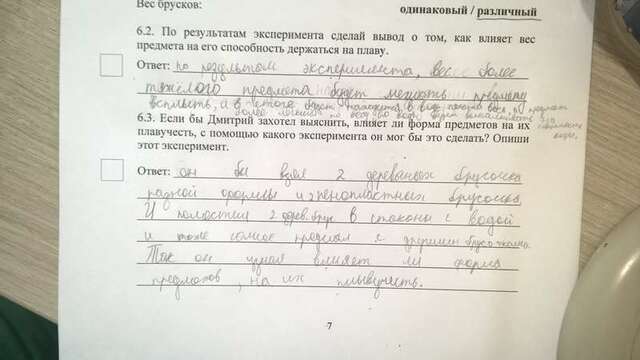 Вес брусков:
одинаковый / различный
6.2. По результатам эксперимента сделай вывод о том, как влияет вес
предмета на его способность держаться на плаву.
Ответ: по результатом эксперимента, вес более
тяжёлого предмета будет мешать предмету
всплыть, а в
6.3. Если бы Дмитрий захотел выяснить, влияет ли форма предметов на их
плавучесть, с помощью какого эксперимента он мог бы это сделать? Опиши
этот эксперимент.
Ответ: он бы взял 2 деревяных брусочка
разной формы и 2 пенопластных брусочка.
И поместил 2 дерев. брус. в стаканы с водой
и тоже самое с другими брусочками.
Так он узнал влияет ли форма
предметов, на их плывучесть.
7